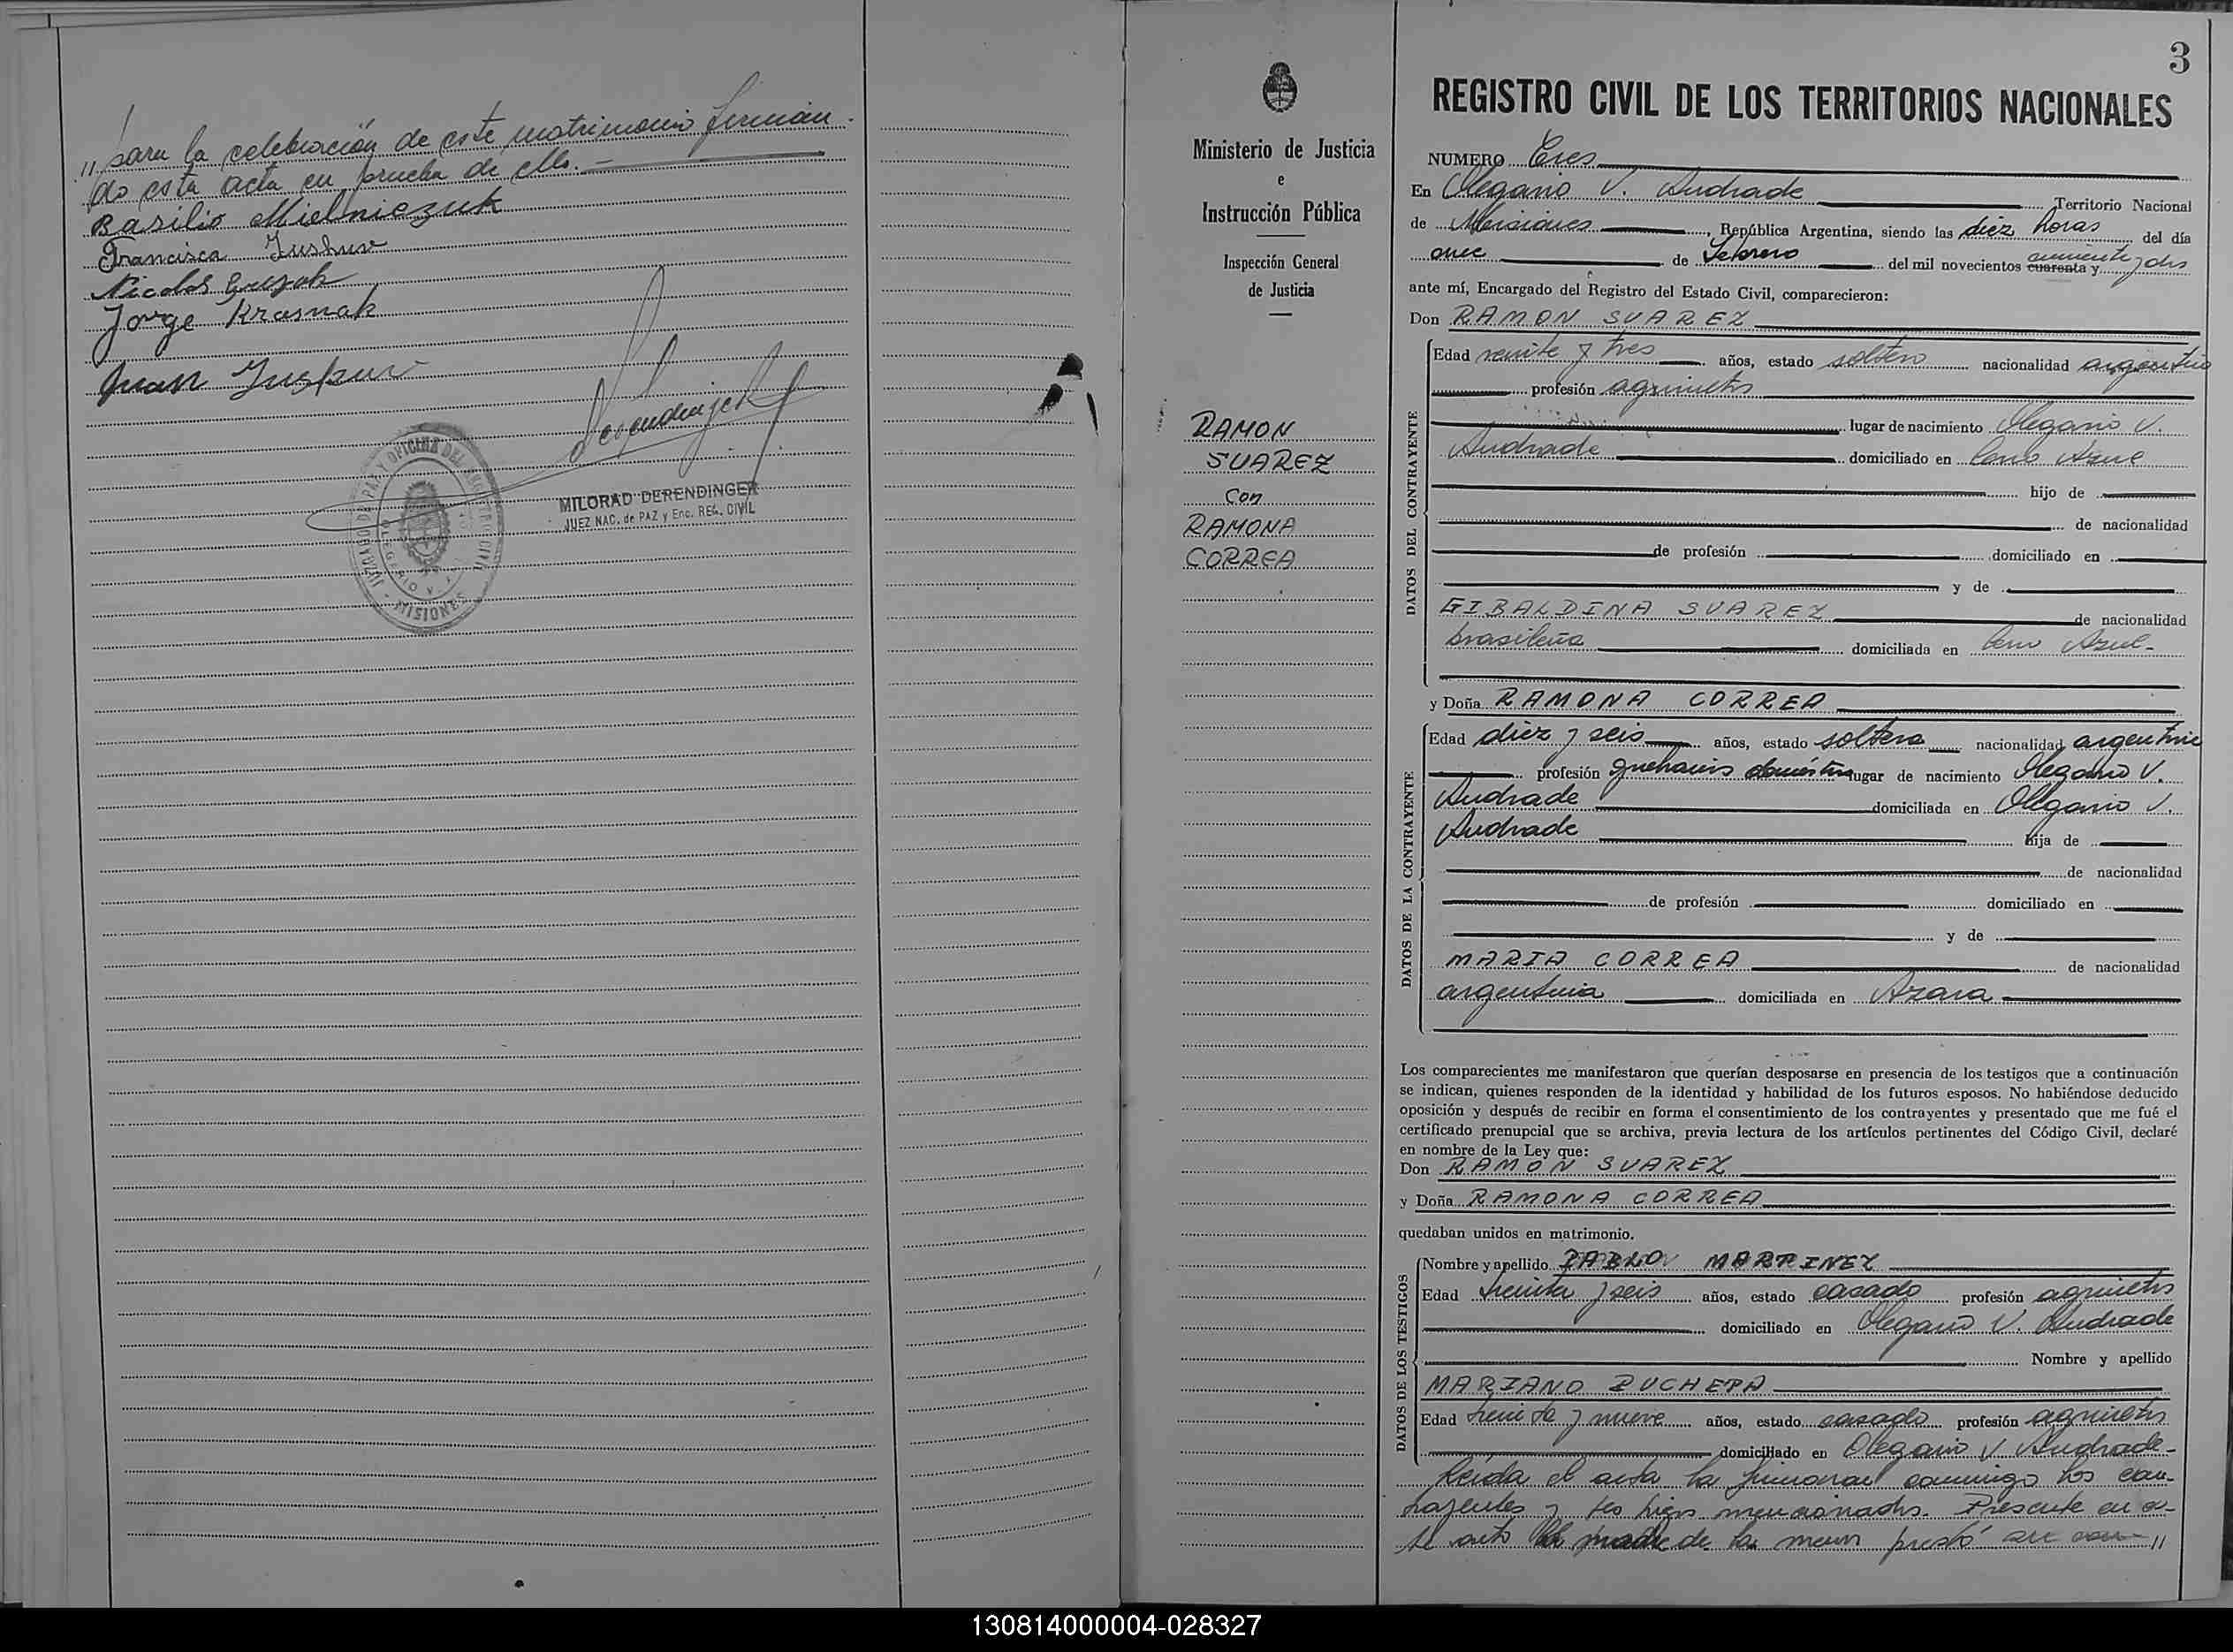 // para la celebración de este matrimonio firman-
do esta acta en prueba de ello.-
Basilio Mielniczuk
Francisca
Nicolas
Jorge Krasnak
Juan
Derendinger
MILORAD DERENDINGER
JUEZ NAC. de PAZ y Enc. REG. CIVIL
JUZGADO DE PAZ Y OFICINA DEL REGISTRO CIVIL
OLEGARIO V.
- MISIONES -
Ministerio de Justicia
e
Instrucción Pública
Inspección General
de Justicia
RAMON
SUAREZ
Con
RAMONA
CORREA
3
REGISTRO CIVIL DE LOS TERRITORIOS NACIONALES
NUMERO Tres
En Olegario V. Andrade Territorio Nacional
de Misiones, República Argentina, siendo las diez horas del día
once de febrero del mil novecientos cuarenta y cincuenta y dos
ante mí, Encargado del Registro del Estado Civil, comparecieron:
Don RAMON SUAREZ
DATOS DEL CONTRAYENTE
Edad veinte y tres años, estado soltero nacionalidad argentino
profesión agricultor
lugar de nacimiento Olegario V.
Andrade domiciliado en Cerro Azul
hijo de
de nacionalidad
de profesión domiciliado en
y de
GIBALDINA SUAREZ de nacionalidad
brasileña domiciliada en Cerro Azul-
y Doña RAMONA CORREA
DATOS DE LA CONTRAYENTE
Edad diez y seis años, estado soltera nacionalidad argentina
profesión quehaceres domésticos lugar de nacimiento Olegario V.
Andrade domiciliada en Olegario V.
Andrade hija de
de nacionalidad
de profesión domiciliado en
y de
MARIA CORREA de nacionalidad
argentina domiciliada en Azara
Los comparecientes me manifestaron que querían desposarse en presencia de los testigos que a continuación
se indican, quienes responden de la identidad y habilidad de los futuros esposos. No habiéndose deducido
oposición y después de recibir en forma el consentimiento de los contrayentes y presentado que me fué el
certificado prenupcial que se archiva, previa lectura de los artículos pertinentes del Código Civil, declaré
en nombre de la Ley que:
Don RAMON SUAREZ
y Doña RAMONA CORREA
quedaban unidos en matrimonio.
DATOS DE LOS TESTIGOS
Nombre y apellido PABLO MARTINEZ
Edad treinta y seis años, estado casado profesión agricultor
domiciliado en Olegario V. Andrade
Nombre y apellido
MARIANO
Edad treinta y nueve años, estado casado profesión agricultor
domiciliado en Olegario V. Andrade-
Leída el acta la firmaron conmigo los con-
trayentes y los tgos mencionados. Presente en es-
te acto la madre de la menor prestó su con- //
130814000004-028327